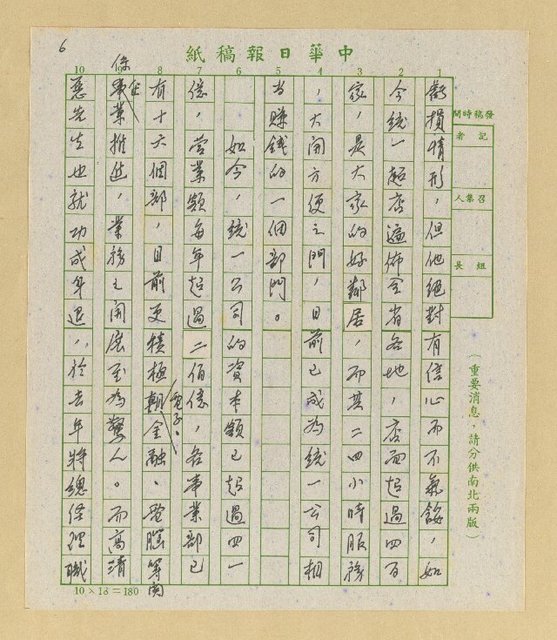 6
中華日報稿紙
發稿時間
記者
召集人
組長
(重要消息,請分供南北兩版)
1 2 3 4 5 6 7 8 9 10
虧損情形,但他絕對有信心而不氣餒,如
今統一超店遍佈全省各地,店面超過四百
家,是大家的好鄰居,而其二四小時服務
,大開方便之門,目前已成為統一公司相
當賺錢的一個部門。
如今,統一公司的資本額已超過四一
億,營業額每年超過二佰億,各事業部已
有十六個部,目前更積極朝電子、金融、電腦等關
係企業推進,業務之開展至為驚人。而高清
愿先生也就功成身退,於去年將總經理職
10×18=180